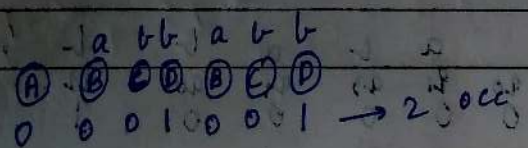 a b b a b b
A B C D B C D
0 0 0 1 0 0 1 → 2 occ